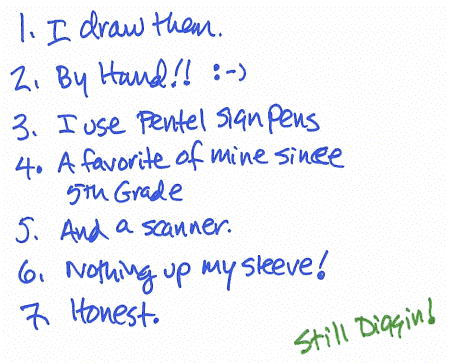 1. I draw them.
2. By Hand!! :-)
3. I use Pentel sign pens
4. A favorite of mine since
5th Grade
5. And a scanner.
6. Nothing up my sleeve!
7. Honest.
Still Diggin!